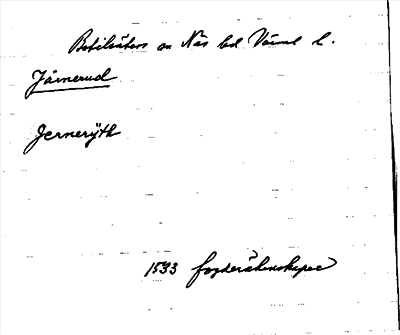 Botilsäters sn Näs hd Värml l.
Järnerud
Jernerÿth
1593 fogderäkenskaper